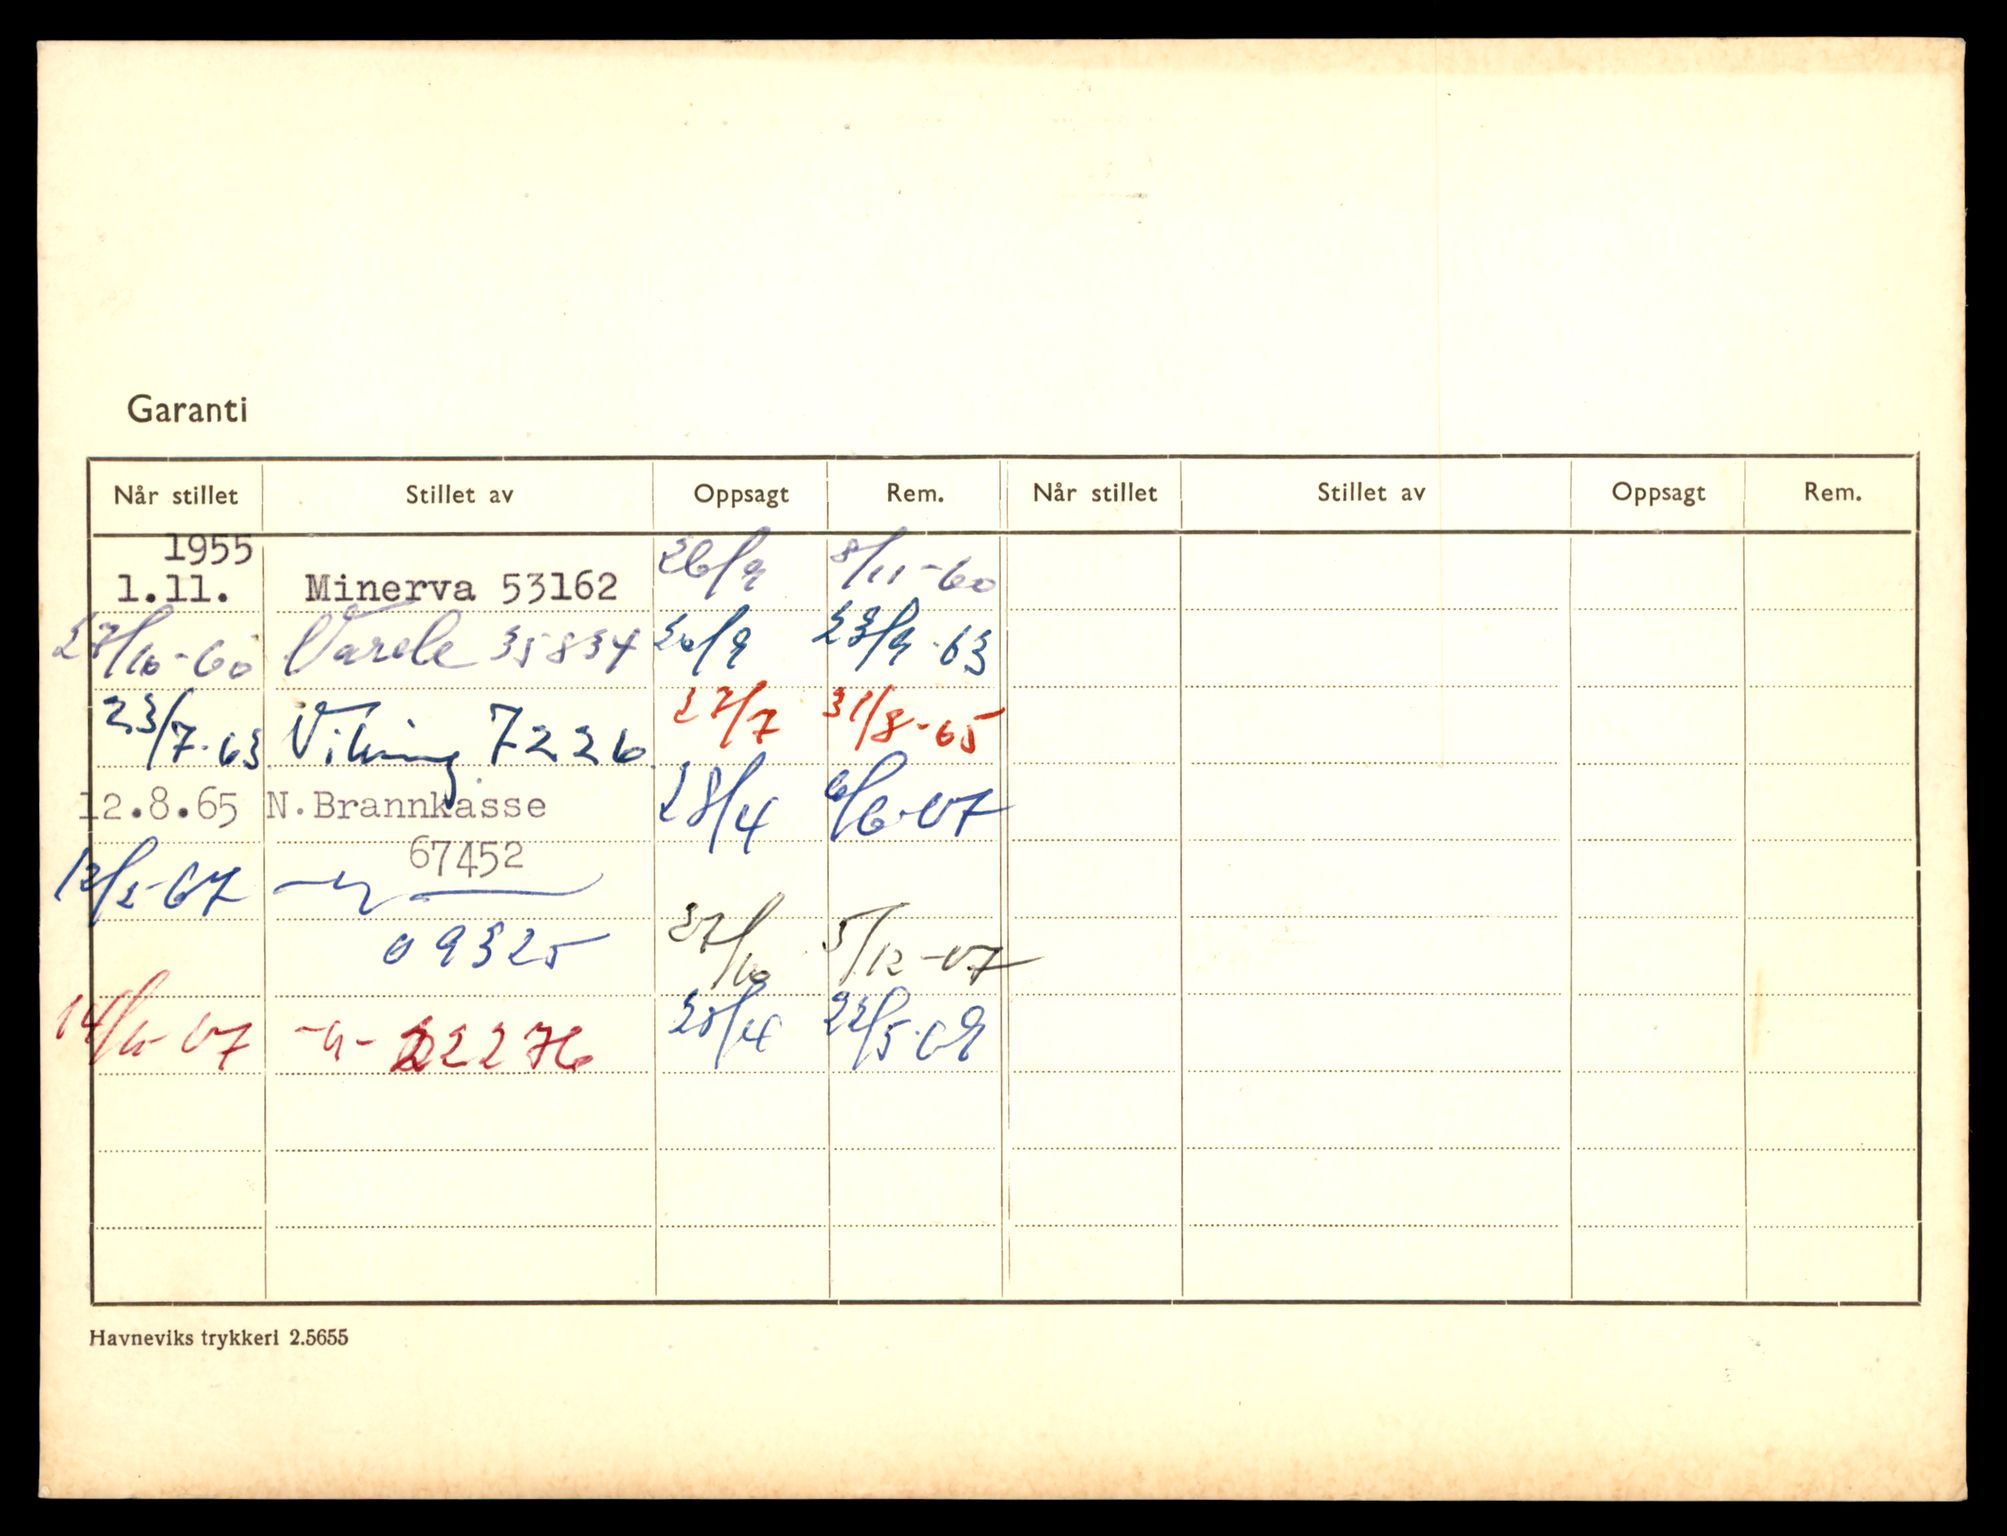 Garanti
Når stillet Stillet av Oppsagt Rem. Når stillet Stillet av Oppsagt Rem.
1955
1.11. Minerva 53162 26/9 8/11-60
27/10-60 35834 20/9 23/9-63
23/7-63 Viking 7226 27/7 31/8-65
12.8.65 N.Brannkasse 28/4 6/6-67
67452
12/5-67 -"-
09325 27/10 5/12-67
14/11-67 -"- 22276 28/4 22/5-69
Havneviks trykkeri 2.5655